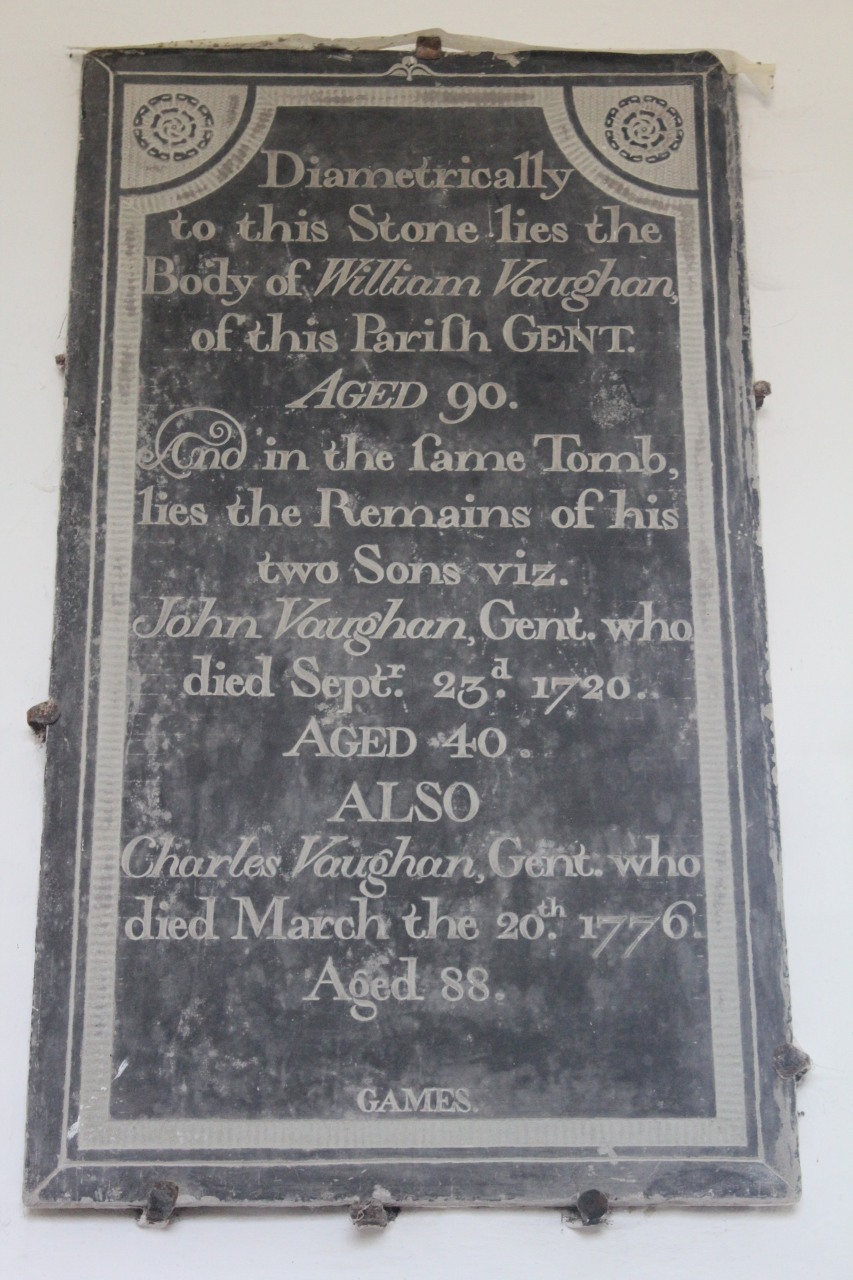 Diametrically
to this Stone lies the
Body of William Vaughan,
of this Pariſh GENT.
AGED 90.
And in the ſame Tomb,
lies the Remains of his
two Sons viz.
John Vaughan, Gent. who
died Septr. 23d. 1720.
AGED 40.
ALSO
Charles Vaughan, Gent. who
died March the 20th. 1776.
Aged 88.
GAMES.